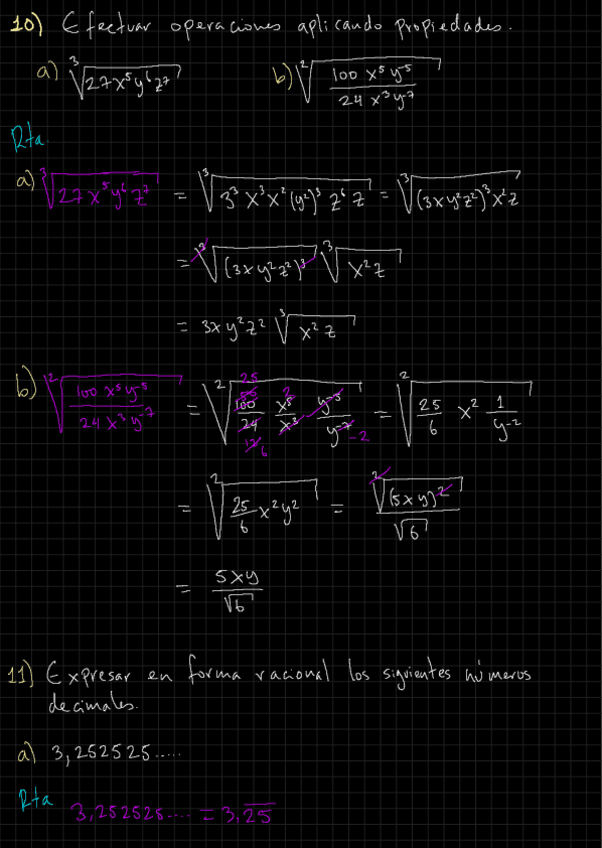 10) Efectuar operaciones aplicando propiedades.
a) ∛(27x⁵y⁶z⁷)    b) ²√(100 x⁵ y⁻⁵ / 24 x³ y⁻⁷)
Rta
a) ∛(27x⁵y⁶z⁷) = ∛(3³ x³ x² (y²)³ z⁶ z) = ∛((3xy²z²)³ x²z)
= ∛((3xy²z²)³) ∛(x²z)
= 3xy²z² ∛(x²z)
b) ²√(100 x⁵ y⁻⁵ / 24 x³ y⁻⁷) = ²√(100/24 x⁵/x³ y⁻⁵/y⁻⁷) = ²√(25/6 x² 1/y⁻²)
= ²√(25/6 x² y²) = ²√((5xy)²) / √6
= 5xy / √6
11) Expresar en forma racional los siguientes números
decimales.
a) 3,252525.....
Rta 3,252525.... = 3,2̅5̅